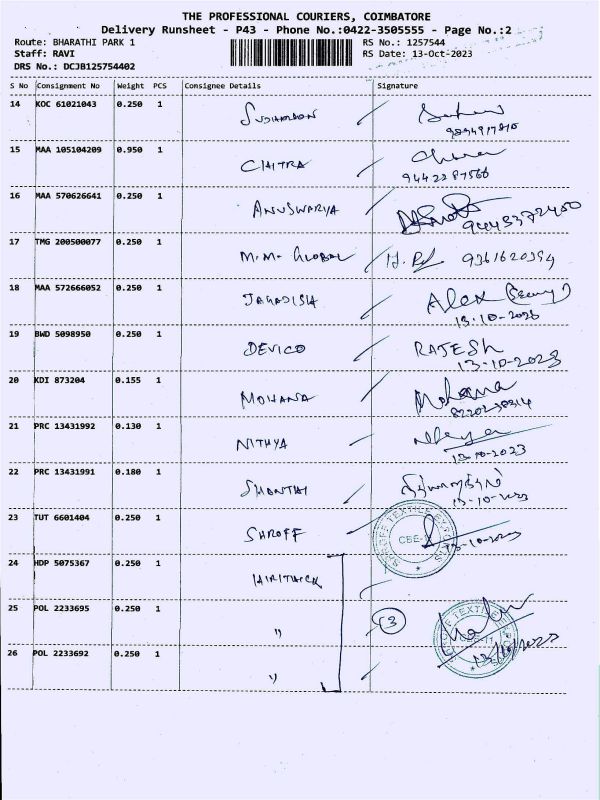 THE PROFESSIONAL COURIERS, COIMBATORE
Delivery Runsheet - P43 - Phone No.:0422-3505555 - Page No.:2
Route: BHARATHI PARK 1 RS No.: 1257544
Staff: RAVI RS Date: 13-Oct-2023
DRS No.: DCJB125754402
S No Consignment No Weight PCS Consignee Details Signature
14 KOC 61021043 0.250 1
15 MAA 105104209 0.950 1 CHITRA
16 MAA 570626641 0.250 1 ANUSWARYA
17 TMG 200500077 0.250 1 M.M. GLOBAL
18 MAA 572666052 0.250 1 JAGADISH Alex
13-10-2023
19 BWD 5098950 0.250 1 DEVICO RAJESH
13-10-2023
20 KDI 873204 0.155 1 MOHANA Mohana
21 PRC 13431992 0.130 1 NITHYA
13-10-2023
22 PRC 13431991 0.180 1 SHANTHI
13-10-2023
23 TUT 6601404 0.250 1 SHROFF CBE
13-10-2023
24 HDP 5075367 0.250 1
25 POL 2233695 0.250 1 " 3
26 POL 2233692 0.250 1 " 13/10/2023